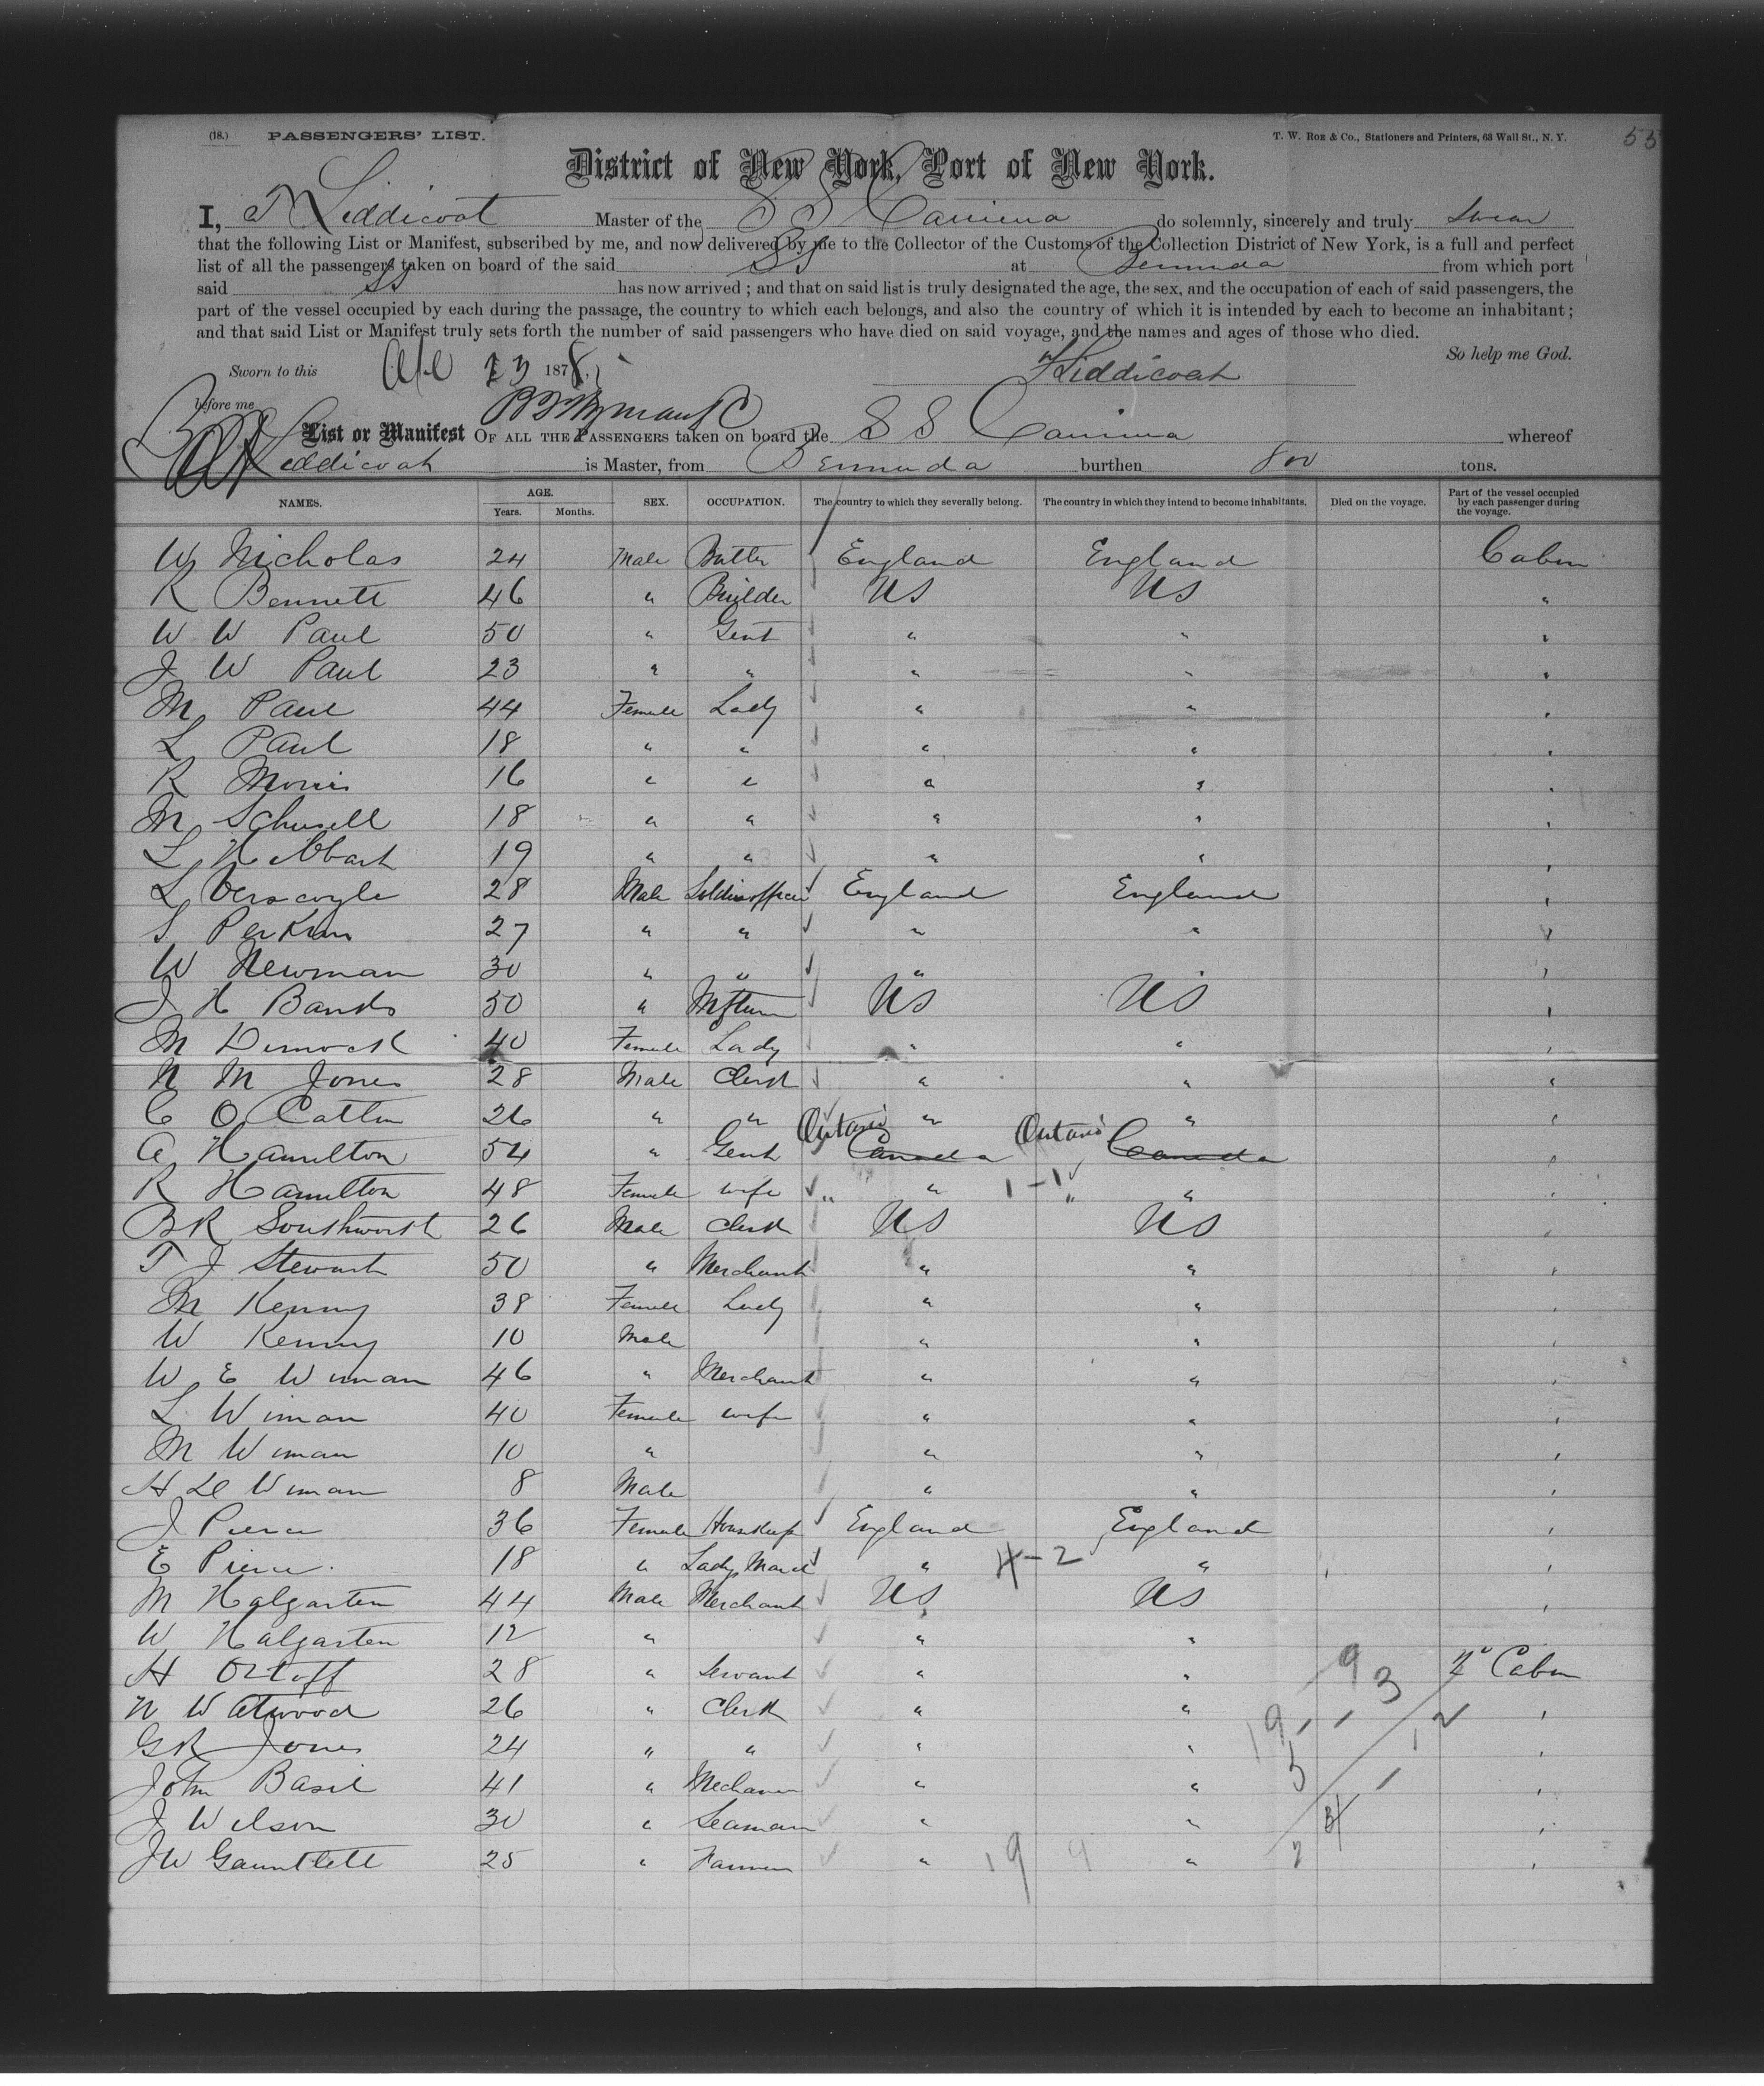 (18.) PASSENGERS' LIST. T. W. ROE & Co., Stationers and Printers, 63 Wall St., N. Y. 55
District of New York, Port of New York.
I, Liddicoat Master of the SS Canima do solemnly, sincerely and truly swear
that the following List or Manifest, subscribed by me, and now delivered by me to the Collector of the Customs of the Collection District of New York, is a full and perfect
list of all the passengers taken on board of the said SS at Bermuda from which port
said SS has now arrived; and that on said list is truly designated the age, the sex, and the occupation of each of said passengers, the
part of the vessel occupied by each during the passage, the country to which each belongs, and also the country of which it is intended by each to become an inhabitant;
and that said List or Manifest truly sets forth the number of said passengers who have died on said voyage, and the names and ages of those who died.
So help me God.
Sworn to this 23 1878, Liddicoat
before me
List or Manifest OF ALL THE PASSENGERS taken on board the SS Canima whereof
Liddicoat is Master, from Bermuda burthen 800 tons.
NAMES. AGE. Years. Months. SEX. OCCUPATION. The country to which they severally belong. The country in which they intend to become inhabitants. Died on the voyage. Part of the vessel occupied by each passenger during the voyage.
W Nicholas 24 Male England England Cabin
R Bennett 46 " Builder US US "
W W Paul 50 " Gent " " "
J W Paul 23 " " " " "
M Paul 44 Female Lady " " "
L Paul 18 " " " " "
R Morris 16 " " " " "
M Schusell 18 " " " " "
L Hibbart 19 " " " " "
L Verscoyle 28 Male Soldier officer England England "
S Perkins 27 " " " " "
W Newman 30 " " " " "
J H Banks 50 " US US "
M Dimock 40 Female Lady " " "
N M Jones 28 Male Clerk " " "
C O Catlin 26 " " " " "
A Hamilton 54 " Gent Ontario Canada Ontario Canada "
R Hamilton 48 Female wife " " 1-1 " " "
B R Southworth 26 Male Clerk US US "
T J Stewart 50 " Merchant " " "
M Kenny 38 Female Lady " " "
W Kenny 10 Male " " "
W E Wiman 46 " Merchant " " "
L Wiman 40 Female wife " " "
M Wiman 10 " " " "
H De Wiman 8 Male " " "
J Pierce 36 Female Housekeep England England "
E Pierce 18 " Ladys Maid " 4-2 " "
M Halgarten 44 Male Merchant US US "
W Halgarten 12 " " " "
H Ortoff 28 " Servant " " 2d Cabin
N W Atwood 26 " Clerk " " "
G R Jones 24 " " " " "
John Basil 41 " Mechanic " " "
J Wilson 30 " Seaman " " "
J W Gauntlett 25 " Farmer " " "